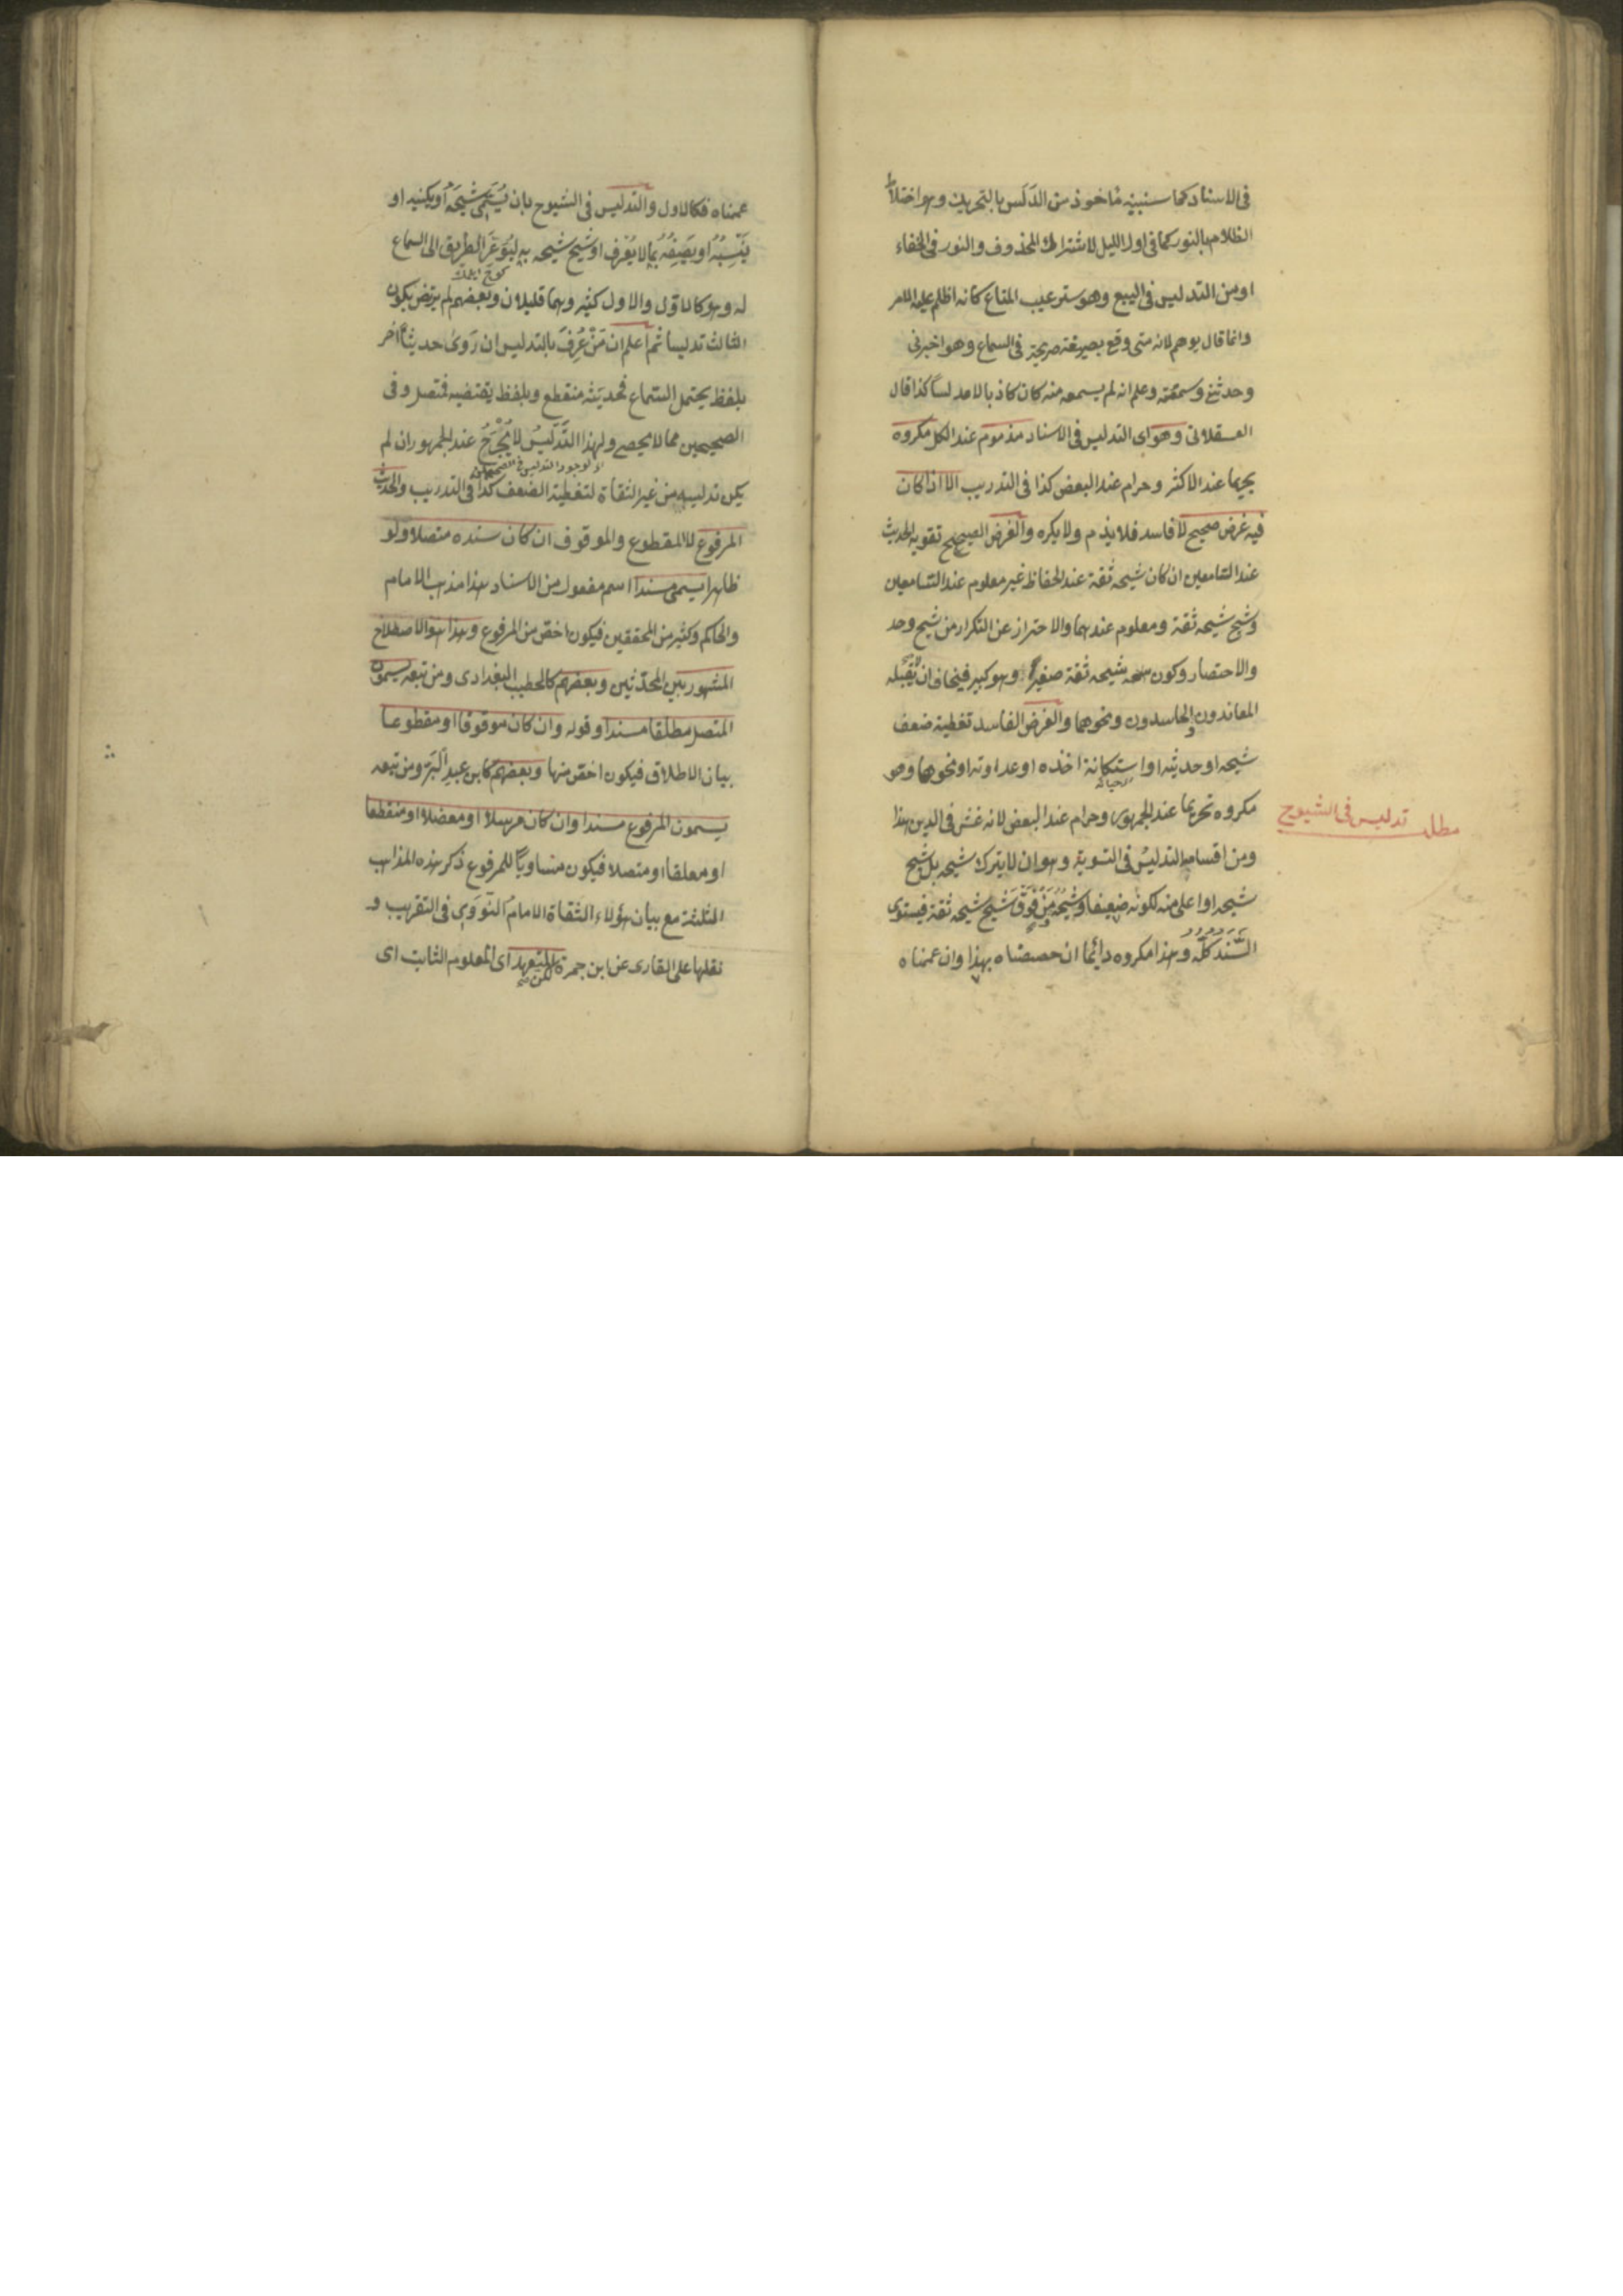 فى الاسناد كما سنبينه مأخوذ من الدَلَس بالتحريك وهو اختلاط
الظلام بالنور كما فى اول الليل لاشتراك المحذوف والنور فى الخفاء
او من التدليس فى البيع وهو ستر عيب المتاع كانه اظلم عليه الامر
وانما قال يوهم لانه متى وقع بصيغة صريحة فى السماع وهو اخبرنى
وحدثنى وسمعته وعلم انه لم يسمعه منه كان كاذبا لا مدلساً كذا قال
العسقلانى وهو اى التدليس فى الاسناد مذموم عند الكل مكروه
تحريما عند الاكثر وحرام عند البعض كذا فى التدريب الا اذا كان
فيه غرض صحيح لا فاسد فلا يذم ولا يكره والغرض الصحيح تقوية الحديث
عند السامعين ان كان شيخه ثقة عند الحفاظ غير معلوم عند السامعين
وشيخ شيخه ثقة ومعلوم عندهما والاحتراز عن التكرار من شيخ وحد
والاختصار وكون شيخه ثقة صغيرا وهو كبير فيخاف ان يقبله
المعاندون والحاسدون ونحوهما والغرض الفاسد تغطية ضعف
شيخه او حديثه او استكانة اخذه او عداوته او نحوهما وهو
مكروه تحريما عند الجمهور وحرام عند البعض لانه غش فى الدين هذا
مطلب تدليس فى الشيوخ
ومن اقسامه التدليس فى التسوية وهو ان لا يترك شيخه بل شيخ
شيخه او اعلى منه لكونه ضعيفا وشيخه مَنْ فَوْقَ شَيْخِ شيخه ثقة فيستوى
السَّنَد كلّه وهذا مكروه دائما ان خصصناه بهذا وان عممناه
عممناه فكالاول والتدليس فى الشيوخ بان يُسَمِّى شَيْخَهُ او يكنيه او
يَنْسِبُهُ او يَصِفُهُ بما لا يُعْرف او شيخ شيخه به ليُوَعِّرَ الطريق الى السماع
له وهو كالاول والاول كثير وهما قليلان وبعضهم لم يرتض بكون
الثالث تدليسا ثم اعلم ان مَنْ عُرِفَ بالتدليس ان رَوَى حديثاً آخر
بلفظ يحتمل السماع فحديثه منقطع وبلفظ يقتضيه فمتصل وفى
الصحيحين مما لا يحصى ولهذا التَّدْلِيسُ لا يُجْرَحُ عند الجمهور ان لم
اذ لوجود التدليس فى الصحيحين
يكن تدليسه من غير الثقاة لتغطية الضعف كذا فى التدريب والحديث
المرفوع لا المقطوع والموقوف ان كان سنده متصلا ولو
ظاهرا يسمى مسندا اسم مفعول من الاسناد هذا مذهب الامام
والحاكم وكثير من المحققين فيكون اخص من المرفوع وهذا هو الاصطلاح
المشهور بين المحدّثين وبعضهم كالخطيب البغدادى ومن تبعه يسمون
المتصل مطلقا مسندا وقوله وان كان موقوفا او مقطوعا
بيان الاطلاق فيكون اخص منها وبعضهم كابن عبد البر ومن تبعه
يسمون المرفوع مسندا وان كان مرسلا او معضلا او منقطعا
او معلقا او متصلا فيكون متساوياً للمرفوع ذكر هذه المذاهب
الثلثة مع بيان هؤلاء الثقاة الامام النووى فى التقريب و
نقلها على القارى عن ابن جمرة لكن المتعهد اى المعلوم الثابت اى